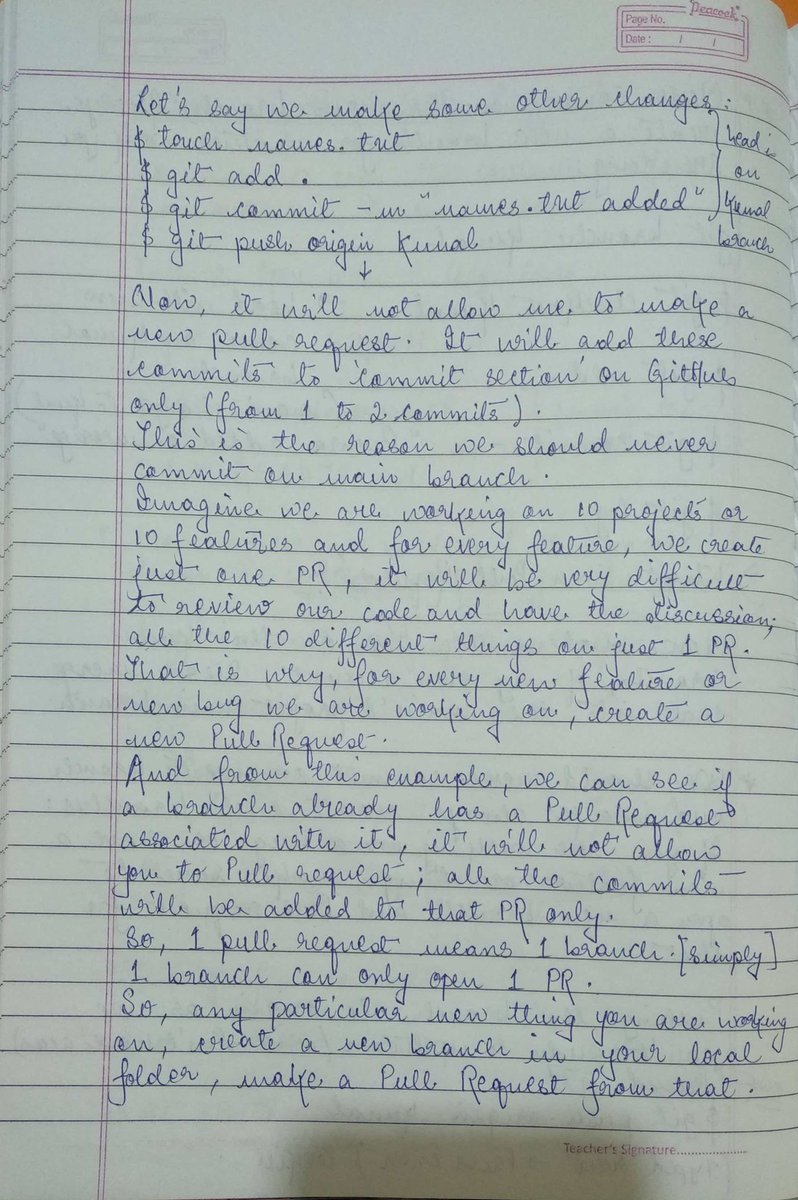 Peacock
Page No.
Date : / /
Let's say we make some other changes :
$ touch names.txt
$ git add .
$ git commit -m "names.txt added"
$ git push origin Kunal
head is
on
Kunal
branch
↓
Now, it will not allow me to make a
new pull request. It will add these
commits to 'commit section' on GitHub
only (from 1 to 2 commits).
This is the reason we should never
commit on main branch.
Imagine we are working on 10 projects or
10 features and for every feature, we create
just one PR, it will be very difficult
to review our code and have the discussion;
all the 10 different things on just 1 PR.
That is why, for every new feature or
new bug we are working on, create a
new Pull Request.
And from this example, we can see if
a branch already has a Pull Request
associated with it, it will not allow
you to Pull request ; all the commits
will be added to that PR only.
So, 1 pull request means 1 branch. [simply]
1 branch can only open 1 PR.
So, any particular new thing you are working
on, create a new branch in your local
folder, make a Pull Request from that.
Teacher's Signature..................